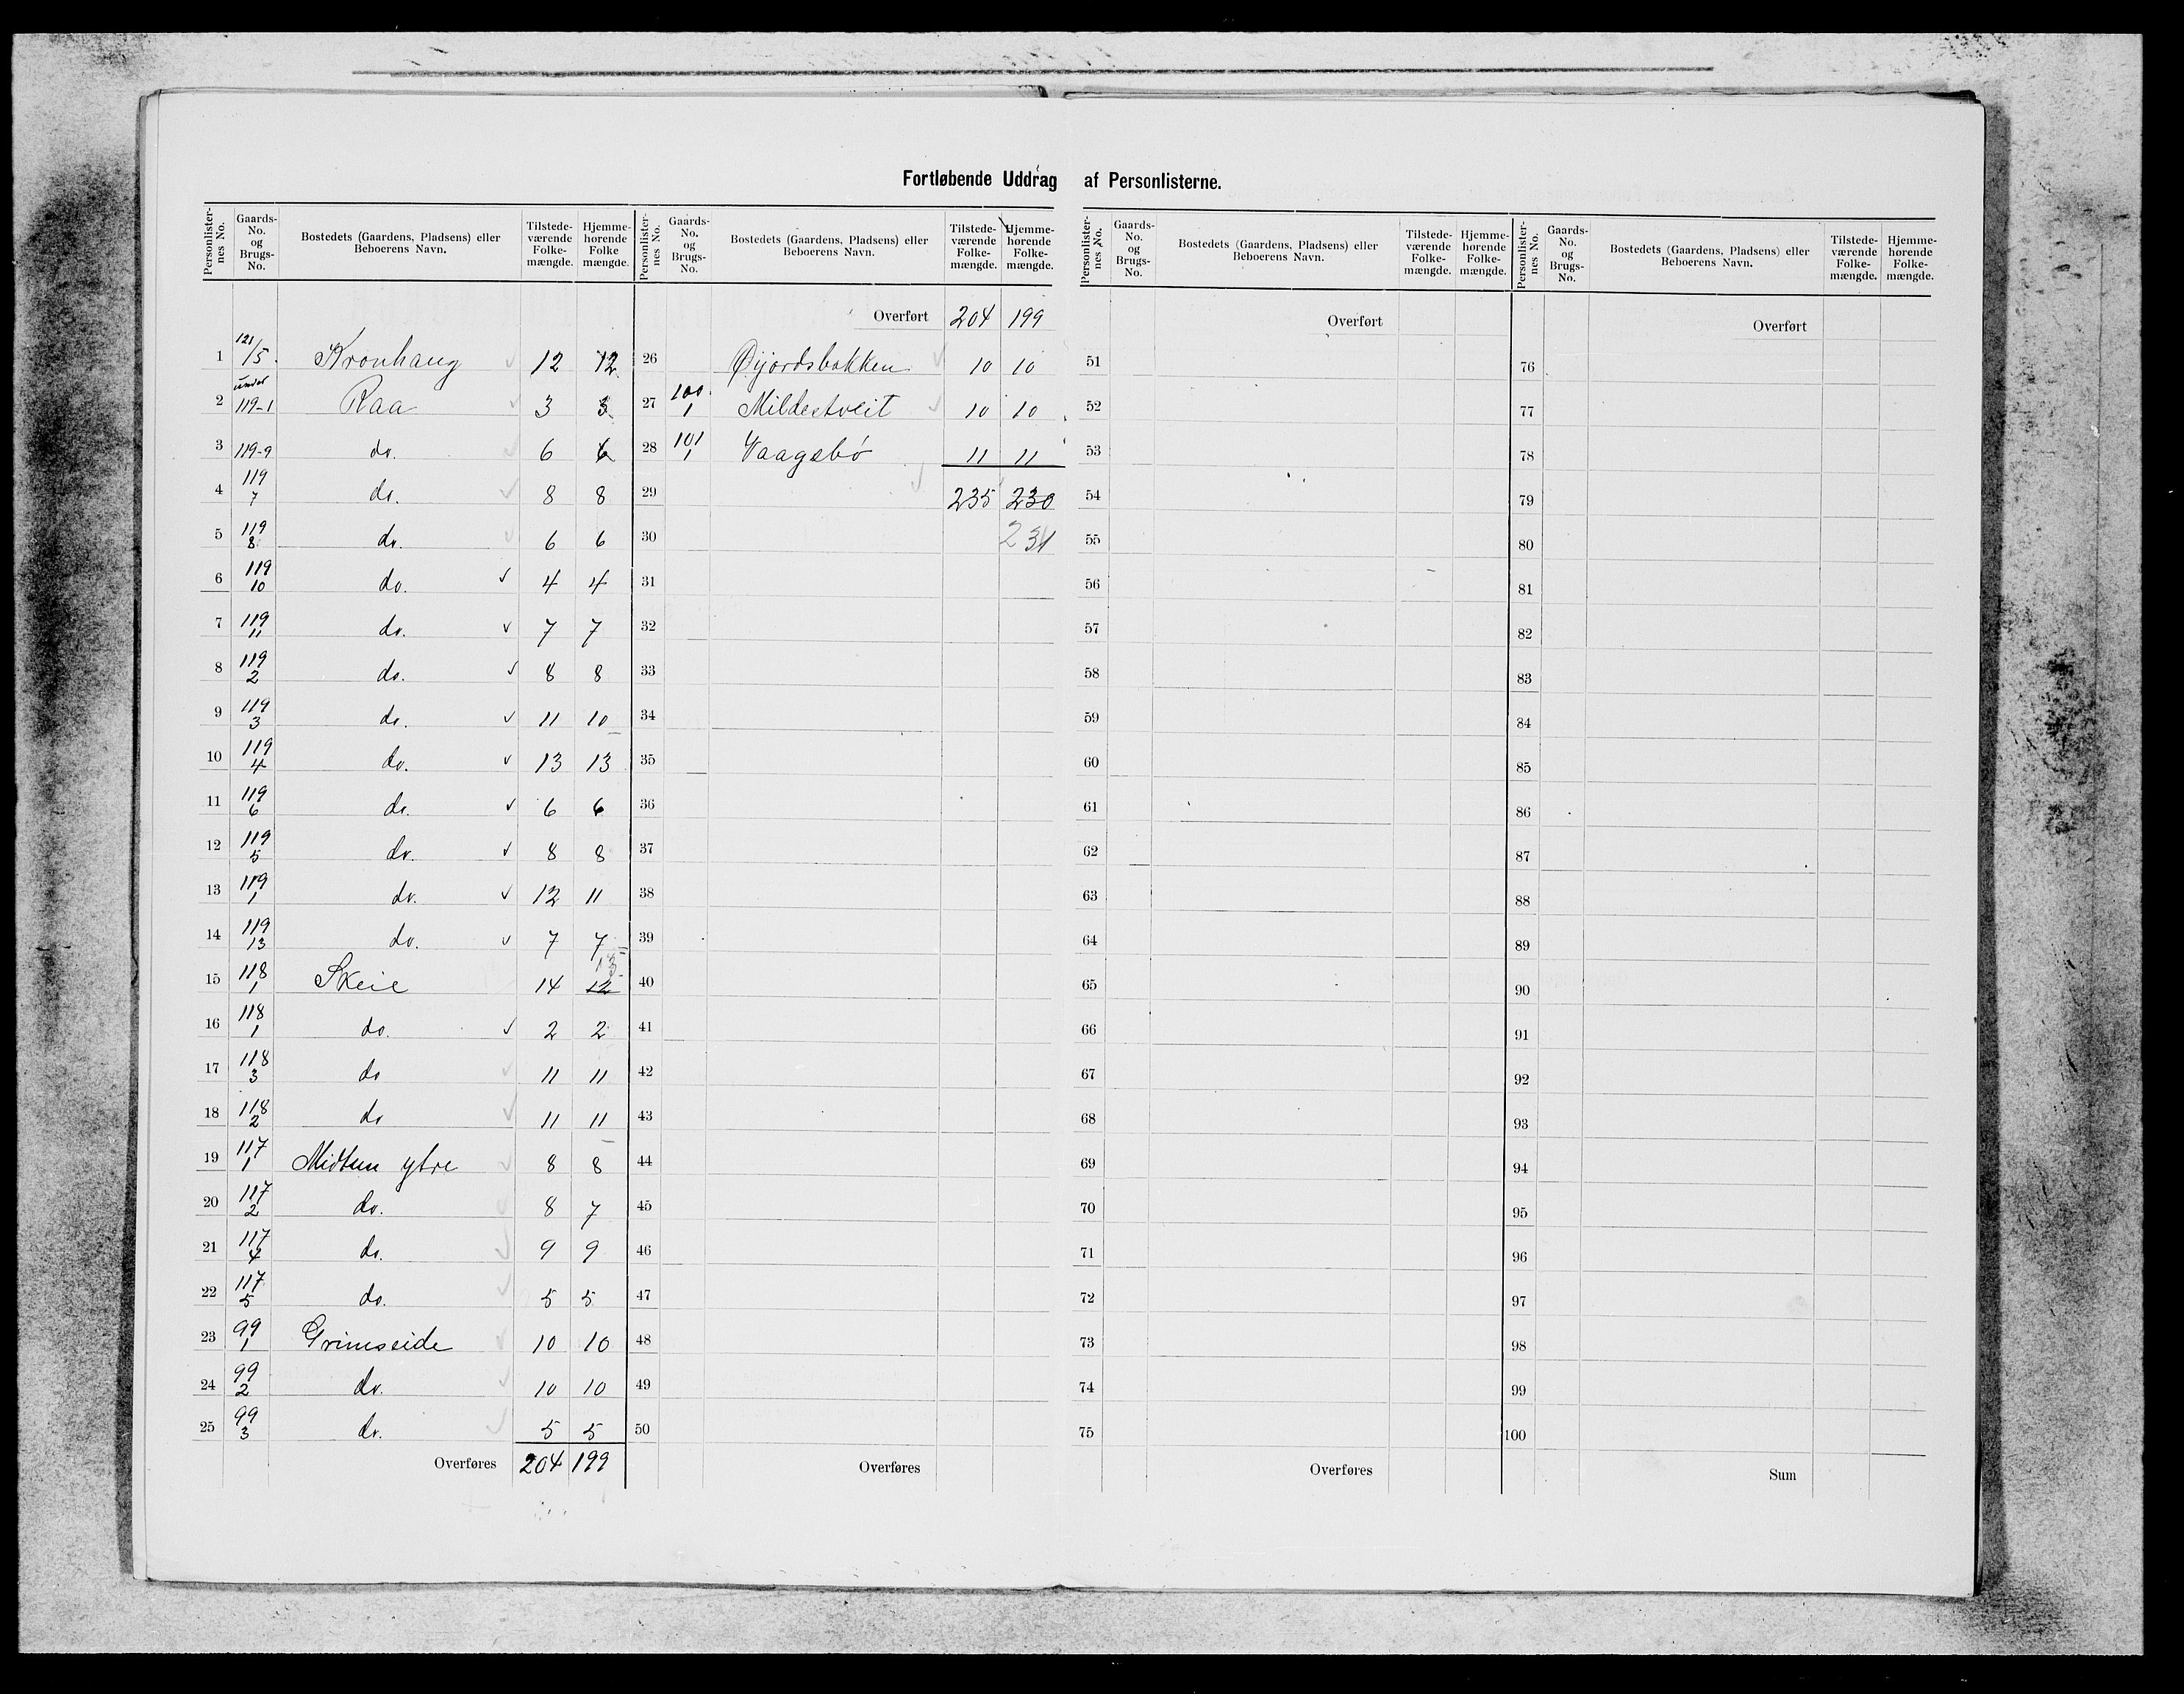 Fortløbende Uddrag af Personlisterne.
Personlister-nes No. | Gaards-No. og Brugs-No. | Bostedets (Gaardens, Pladsens) eller Beboerens Navn. | Tilstede-værende Folke-mængde. | Hjemme-hørende Folke mængde.
1 | 121/5. | Kronhaug | 12 | 12
2 | under 119-1 | Raa | 3 | 3
3 | 119-9 | do. | 6 | 6
4 | 119 7 | do. | 8 | 8
5 | 119 8 | do. | 6 | 6
6 | 119 10 | do. | 4 | 4
7 | 119 11 | do. | 7 | 7
8 | 119 2 | do. | 8 | 8
9 | 119 3 | do. | 11 | 10
10 | 119 4 | do. | 13 | 13
11 | 119 6 | do. | 6 | 6
12 | 119 5 | do. | 8 | 8
13 | 119 1 | do. | 12 | 11
14 | 119 13 | do. | 7 | 7
15 | 118 1 | Skeie | 14 | 13 12
16 | 118 1 | do. | 2 | 2
17 | 118 3 | do | 11 | 11
18 | 118 2 | do | 11 | 11
19 | 117 1 | Midtun ytre | 8 | 8
20 | 117 2 | do. | 8 | 7
21 | 117 4 | do. | 9 | 9
22 | 117 5 | do. | 5 | 5
23 | 99 1 | Grimseide | 10 | 10
24 | 99 2 | do. | 10 | 10
25 | 99 3 | do. | 5 | 5
Overføres | 204 | 199
Personlister-nes No. | Gaards-No. og Brugs-No. | Bostedets (Gaardens, Pladsens) eller Beboerens Navn. | Tilstede-værende Folke-mængde. | Hjemme-hørende Folke-mængde.
Overført | 204 | 199
26 | Øijordsbakken | 10 | 10
27 | 100. 1 | Mildestveit | 10 | 10
28 | 101 1 | Vaagsbø | 11 | 11
29 | 235 | 230
30 | 231
31
32
33
34
35
36
37
38
39
40
41
42
43
44
45
46
47
48
49
50
Overføres
Personlister-nes No. | Gaards-No. og Brugs-No. | Bostedets (Gaardens, Pladsens) eller Beboerens Navn. | Tilstede-værende Folke-mængde. | Hjemme-hørende Folke-mængde.
Overført
51
52
53
54
55
56
57
58
59
60
61
62
63
64
65
66
67
68
69
70
71
72
73
74
75
Overføres
Personlister-nes No. | Gaards-No. og Brugs-No. | Bostedets (Gaardens, Pladsens) eller Beboerens Navn. | Tilstede-værende Folke-mængde. | Hjemme-hørende Folke-mængde.
Overført
76
77
78
79
80
81
82
83
84
85
86
87
88
89
90
91
92
93
94
95
96
97
98
99
100
Sum